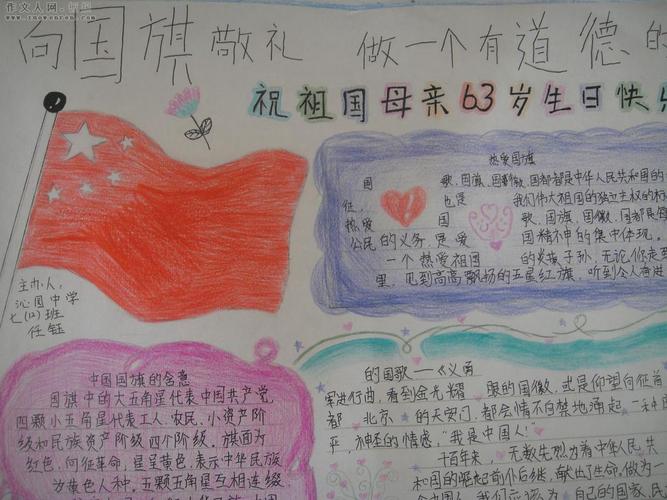 作文人网
www.zuowenren.com
向国旗敬礼 做一个有道德的
祝祖国母亲63岁生日快
热爱国旗
国 歌、国旗、国徽、国都都是中华人民共和国的
征, 也是 我们伟大祖国的独立主权的标
热爱 国 歌、国旗、国徽、国都是每
公民的义务,是爱 国精神的集中体现。
一个热爱祖国 的炎孩子孙,无论你走到
里,见到高高飘扬的五星红旗,听到令人奋进
主办人:
沁园中学
七(12)班
任钰
中国国旗的含意
国旗中的大五角星代表中国共产党,
四颗小五角星代表工人、农民、小资产阶
级和民族资产阶级四个阶级。旗面为
红色,向征革命,星呈黄色,表示中华民族
为黄色人种。五颗五角星互相连缀
的国歌——《义勇
军进行曲,看到金光耀 眼的国徽,或是仰望向征首
都 北京 的天安门,都会情不自禁地涌起
平,神圣的情感,“我是中国人!”
十百年来, 无数先烈为着中华人民共
和国的崛起前仆后继,献出了生命,做为一
自己的国家、民